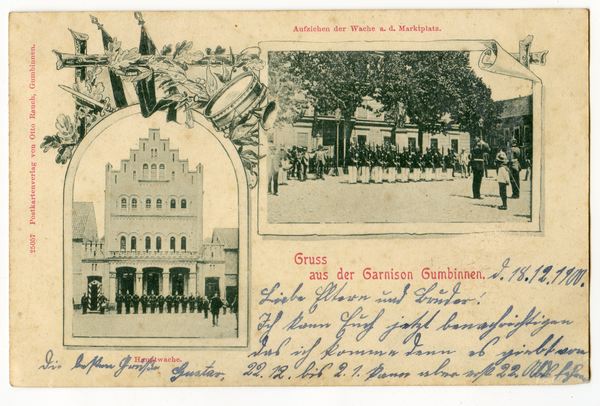 Aufziehen der Wache a. d. Marktplatz.
25057 Postkartenverlag von Otto Rauch, Gumbinnen.
Gruss
aus der Garnison Gumbinnen.
d. 18.12.1900.
Liebe Eltern und Brüder!
Ich kann Euch jetzt benachrichtigen
das ich komme denn es giebt von
22.12. bis 2.1. kann aber erst 22.
Hauptwache.
die besten Grüße Gustav.